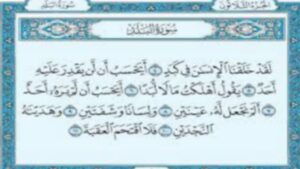 الجزء الثلاثون سورة البلد
سُورَةُ البَلَدِ
لَقَدْ خَلَقْنَا الْإِنسَٰنَ فِي كَبَدٍ أَيَحْسَبُ أَن لَّن يَقْدِرَ عَلَيْهِ
أَحَدٌ يَقُولُ أَهْلَكْتُ مَالًا لُّبَدًا أَيَحْسَبُ أَن لَّمْ يَرَهُ أَحَدٌ
أَلَمْ نَجْعَل لَّهُ عَيْنَيْنِ وَلِسَانًا وَشَفَتَيْنِ وَهَدَيْنَٰهُ
النَّجْدَيْنِ فَلَا اقْتَحَمَ الْعَقَبَةَ